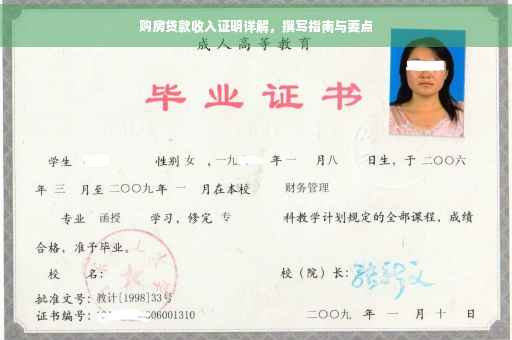 购房贷款收入证明详解，撰写指南与要点
成人高等教育
毕业证书
学生 性别 女 ，一九 年 一 月 八 日生，于 二〇〇六
年 三 月至 二〇〇九 年 一 月在本校 财务管理
专业 函授 学习，修完 专 科教学计划规定的全部课程，成绩
合格，准予毕业。
校 名： 校（院）长：
批准文号：教计[1998]33号
证书编号： 06001310 二〇〇九 年 一 月 十 日